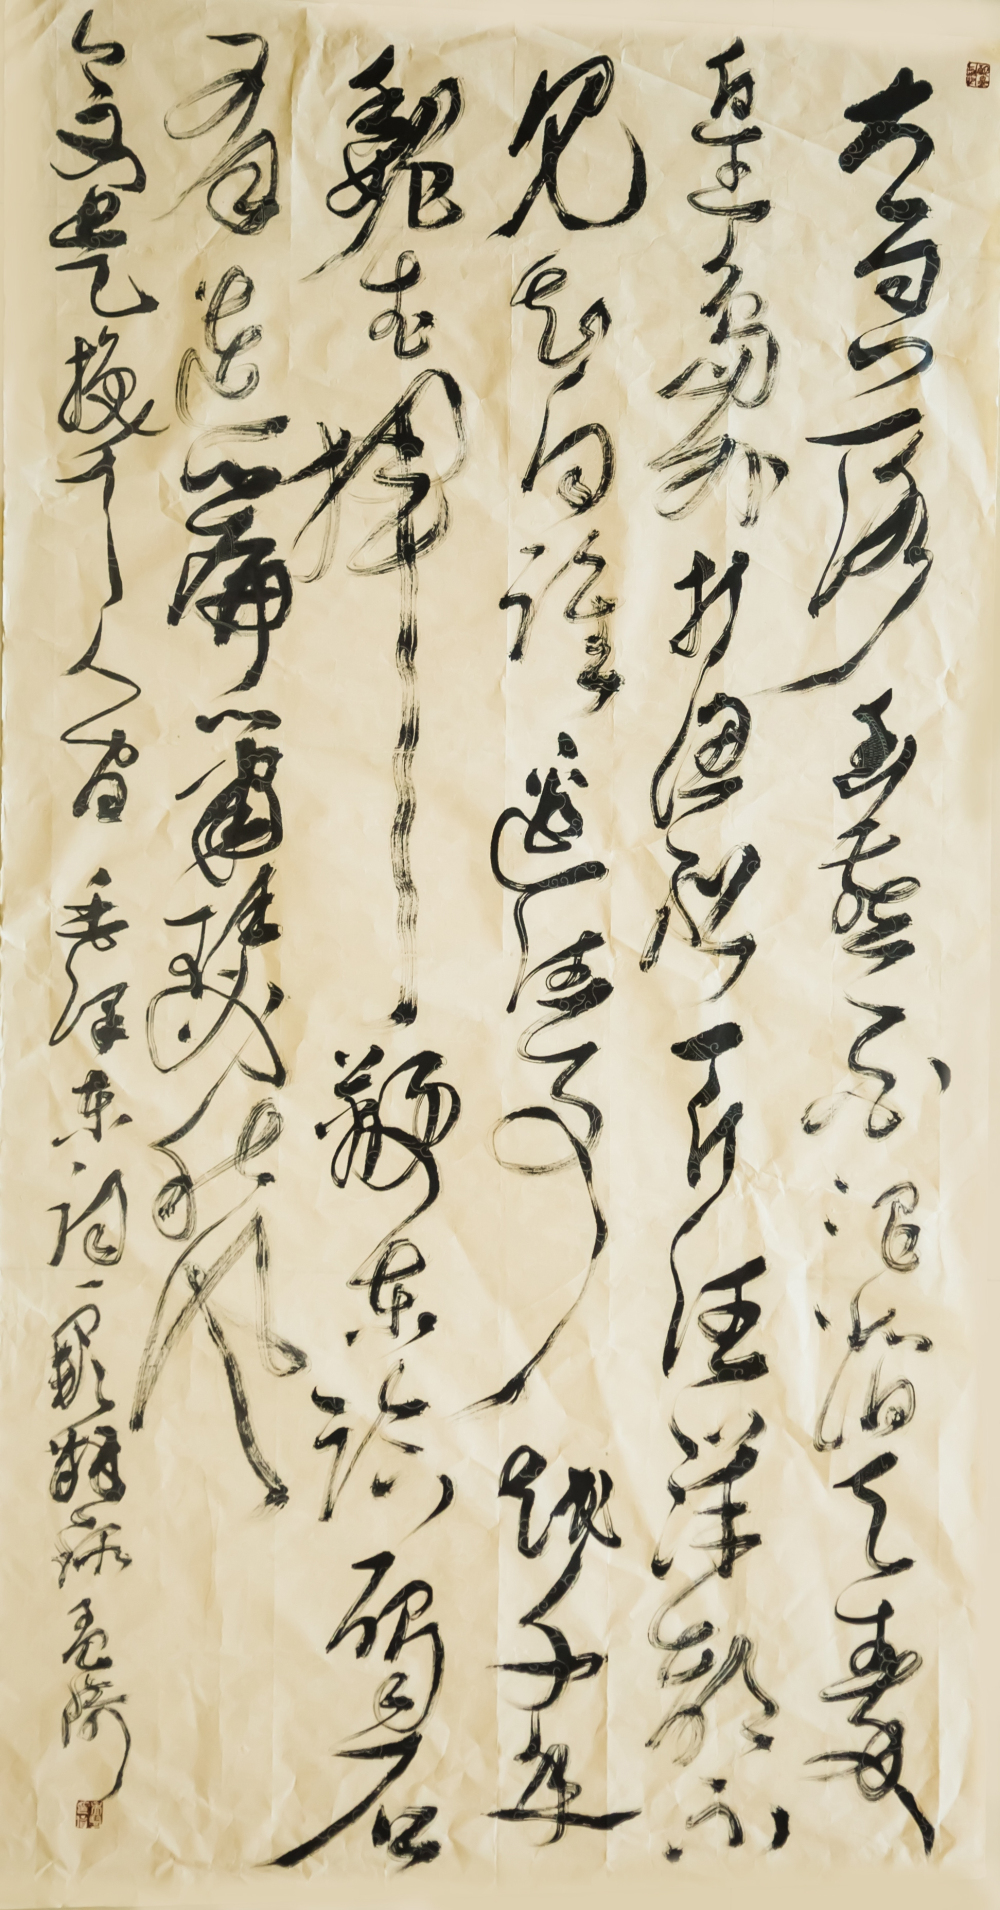 大雨落幽燕白浪滔天秦
皇島外打漁船一片汪洋都不
見知向誰邊往事越千年
魏武揮鞭东临碣石
有遗篇萧瑟秋风
今又是换了人间 毛泽东词一闋